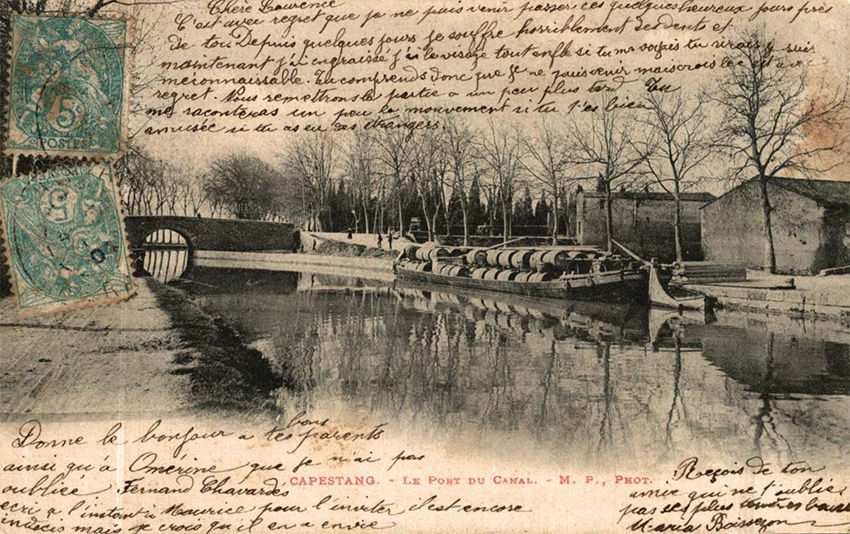 Chère Laurence
C'est avec regret que je ne puis venir passer ces quelques heureux jours près
de toi Depuis quelques jours je souffre horriblement des dents et
maintenant j'ai engraissé j'ai le visage tout enflé si tu me voyais tu dirais je suis
méconnaissable. Tu comprends donc que je ne puis venir mais crois le c'est avec
regret. Nous remettrons la partie a un peu plus tard. Tu
me raconteras un peu le mouvement si tu t'es bien
amusée si tu as eu des étrangers.
5
POSTES
5
04
Donne le bonjour a tes bons parents
ainsi qu'à Omérine que je n'ai pas
oubliée Fernand Chavardès
écri a l'instant à Maurice pour l'inviter il est encore
indécis mais je crois qu'il en a envie
CAPESTANG. - LE PORT DU CANAL. - M. P., PHOT.
Reçois de ton
amie qui ne t'oublie
pas ses plus baisers
Maria Boissezon